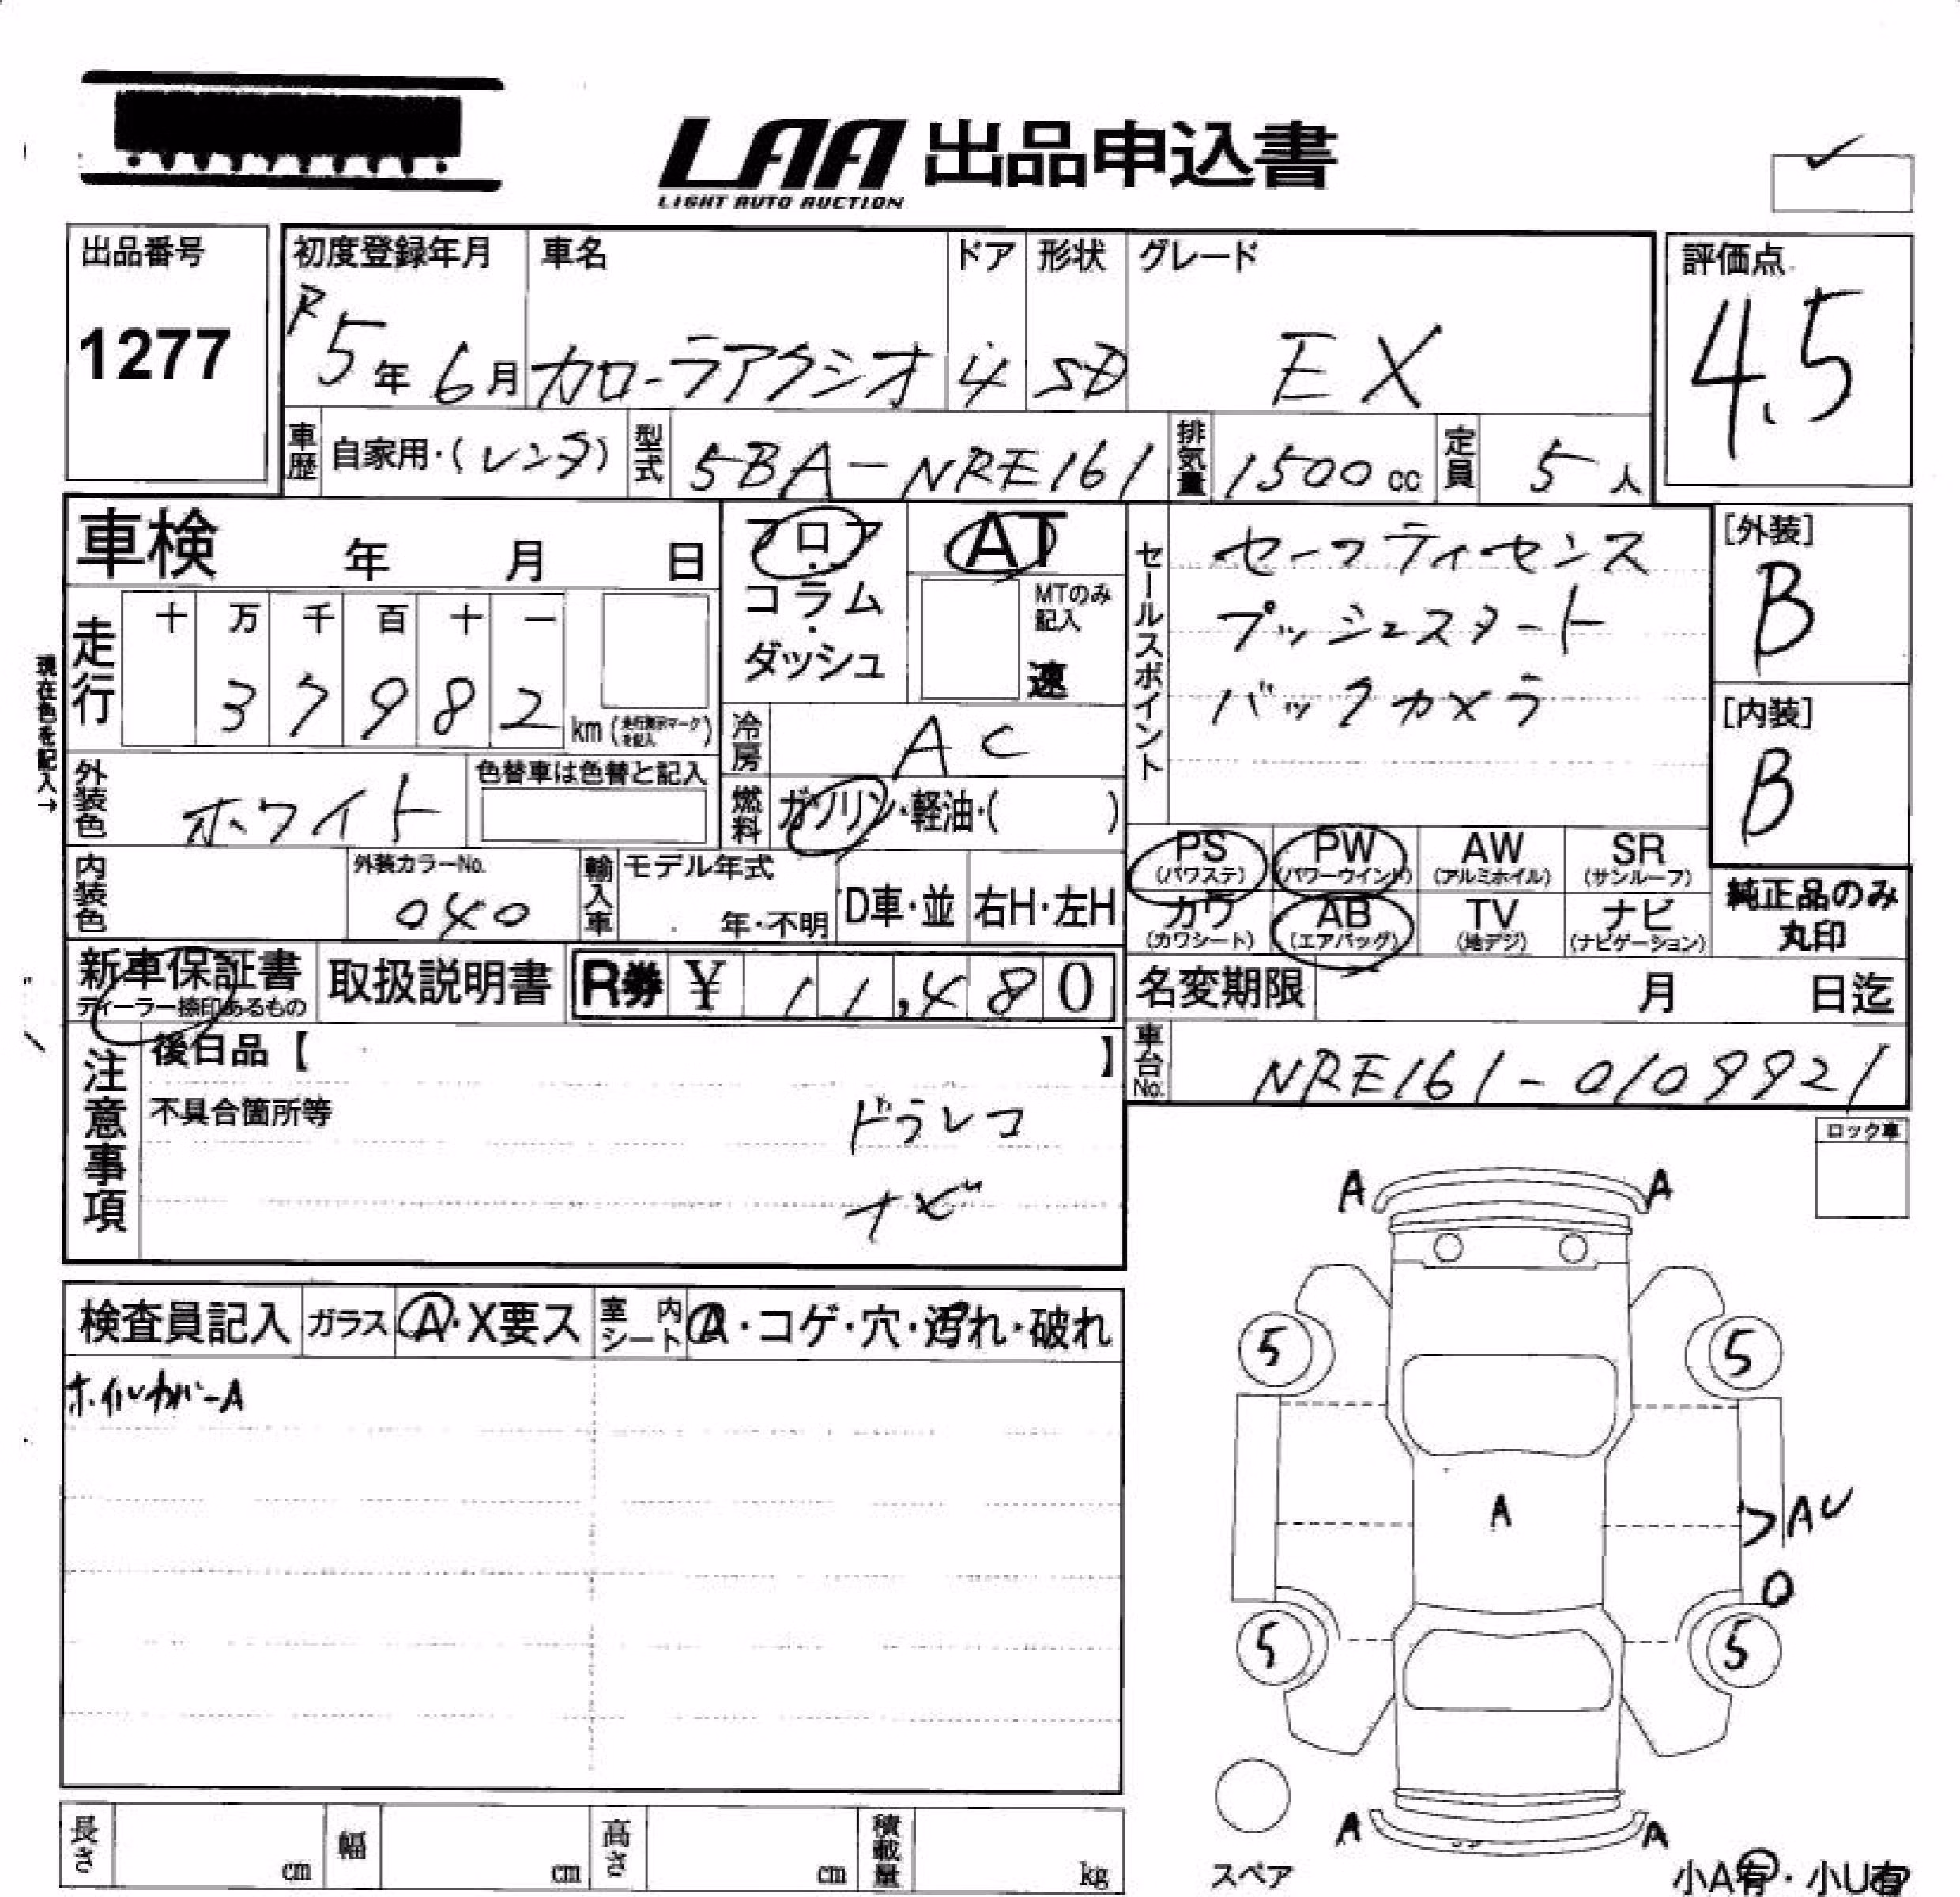 LAA 出品申込書
LIGHT AUTO AUCTION
出品番号
1277
初度登録年月
R5年6月
車名
カローラアクシオ
ドア
4
形状
SD
グレード
EX
評価点
4.5
車歴 自家用・(レンタ)
型式 5BA-NRE161
排気量 1500cc
定員 5人
車検 年 月 日
フロア・コラム・ダッシュ
AT
MTのみ記入
速
セールスポイント
セーフティセンス
プッシュスタート
バックカメラ
[外装]
B
[内装]
B
現在色を記入→
走行
十 万 千 百 十 一
3 7 9 8 2 km (走行表示マークを記入)
冷房 AC
外装色 ホワイト
色替車は色替と記入
燃料 ガソリン・軽油・( )
内装色
外装カラーNo.
040
輸入車
モデル年式
年・不明
D車・並
右H・左H
PS (パワステ)
PW (パワーウインド)
AW (アルミホイル)
SR (サンルーフ)
カワ (カワシート)
AB (エアバッグ)
TV (地デジ)
ナビ (ナビゲーション)
純正品のみ
丸印
新車保証書
ディーラー捺印あるもの
取扱説明書
R券 ¥ 11,480
名変期限 月 日迄
車台No. NRE161-0109921
注意事項
後日品【 】
不具合箇所等
ドラレコ
ナビ
ロック車
検査員記入
ガラス A・X要ス
室内シート A・コゲ・穴・汚れ・破れ
ホイルカバーA
A A
5 5
A
AU
5 5
A A
スペア
小A有・小U有
長さ cm
幅 cm
高さ cm
積載量 kg